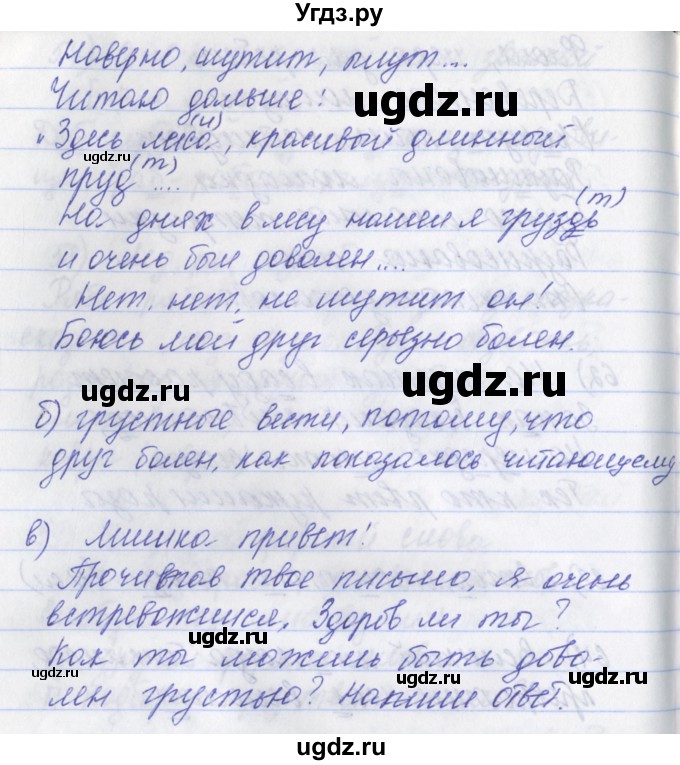 Угдз.ру
Наверно, шутит, плут...
Читаю дальше:
ugdz.ru
(и)
"Здесь леса, красивый длинный
ugdz.ru
пруд (т) ....
(т)
На днях в лесу нашел я груздь
и очень был доволен....
Нет, нет, не шутит он!
Боюсь мой друг серьезно болен.
ugdz.ru ugdz.ru
б) грустные вести, потому, что
друг болен, как показалось читающему
в) Мишка привет!
Прочитав твое письмо, я очень
встревожился. Здоров ли ты?
ugdz.ru
Как ты можешь быть дово-
ugdz.ru ugdz.ru ugdz.ru
лен грустью? Напиши ответ.
ugdz.ru